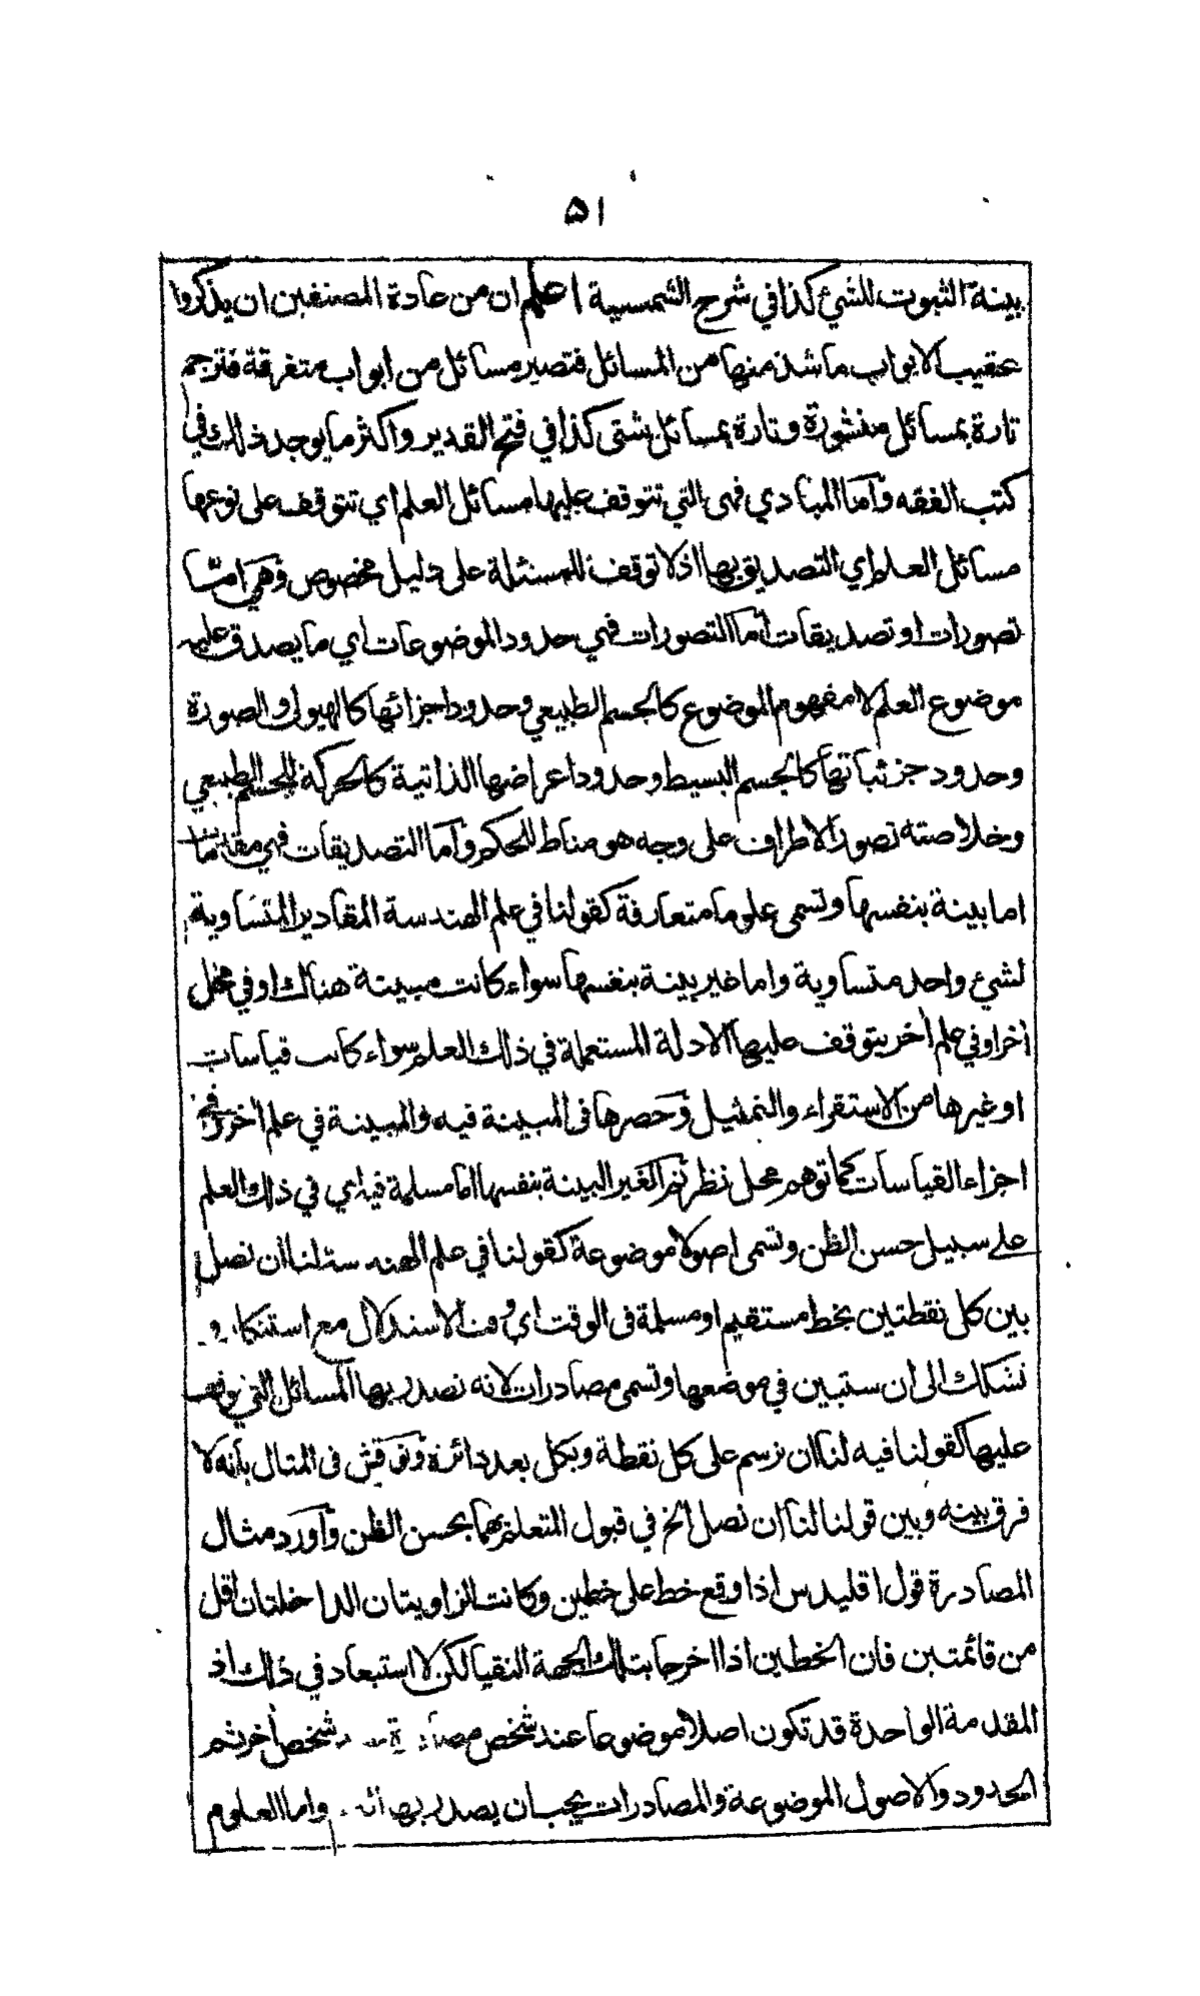 ۵۱
بينة الثبوت للشئ كذا في شرح الشمسية اعلم ان من عادة المصنفين ان يذكروا
عقيب الابواب ما شذ منها من المسائل فتصير مسائل من ابواب متفرقة فترجم
تارة بمسائل منثورة وتارة بمسائل شتى كذا في فتح القدير واكثر ما يوجد ذلك في
كتب الفقه وأما المبادي فهى التي تتوقف عليها مسائل العلم اي تتوقف على نوعها
مسائل العلم اي التصديق بها اذ لا توقف للمسئلة على دليل مخصوص وهي امّا
تصورات او تصديقات أما التصورات فهي حدود الموضوعات اي ما يصدق عليه
موضوع العلم لا مفهوم الموضوع كالجسم الطبيعي وحدود اجزائها كالهيولى والصورة
وحدود جزئياتها كالجسم البسيط وحدود اعراضها الذاتية كالحركة للجسم الطبيعي
وخلاصته تصور الاطراف على وجه هو مناط للحكم وأما التصديقات فهي مقدمات
اما بينة بنفسها وتسمى علوما متعارفة كقولنا في علم الهندسة المقادير المتساوية
لشئ واحد متساوية واما غير بينة بنفسها سواء كانت مبينة هناك او في محل
اخر او في علم أخر يتوقف عليها الادلة المستعملة في ذلك العلم سواء كانت قياسات
او غيرها من الاستقراء والتمثيل وحصرها فى المبينة فيه والمبينة في علم أخر
اجزاء القياسات كما توهم محل نظر ثم الغير البينة بنفسها اما مسلمة فيه اي في ذلك العلم
على سبيل حسن الظن وتسمى اصولا موضوعة كقولنا في علم الهندسة لنا أن نصل
بين كل نقطتين بخط مستقيم او مسلمة فى الوقت اي وقت الاستدلال مع استنكار و
تشكك الى ان ستبين في موضعها وتسمى مصادرات لانه تصدر بها المسائل التي توقف
عليها كقولنا فيه لنا ان نرسم على كل نقطة وبكل بعد دائرة ونوقش فى المثال بأنه لا
فرق بينه وبين قولنا لنا ان نصل الخ في قبول المتعلم بهما بحسن الظن وأورد مثال
المصادرة قول اقليدس اذا وقع خط على خطين وكانت الزاويتان الداخلتان اقل
من قائمتين فان الخطين اذا اخرجا بتلك الجهة التقيا لكن لا استبعاد في ذلك اذ
المقدمة الواحدة قد تكون اصلا موضوعا عند شخص مصادرة شخص أخر ثم
الحدود والاصول الموضوعة والمصادرات يجب ان يصدر بها واما العلوم